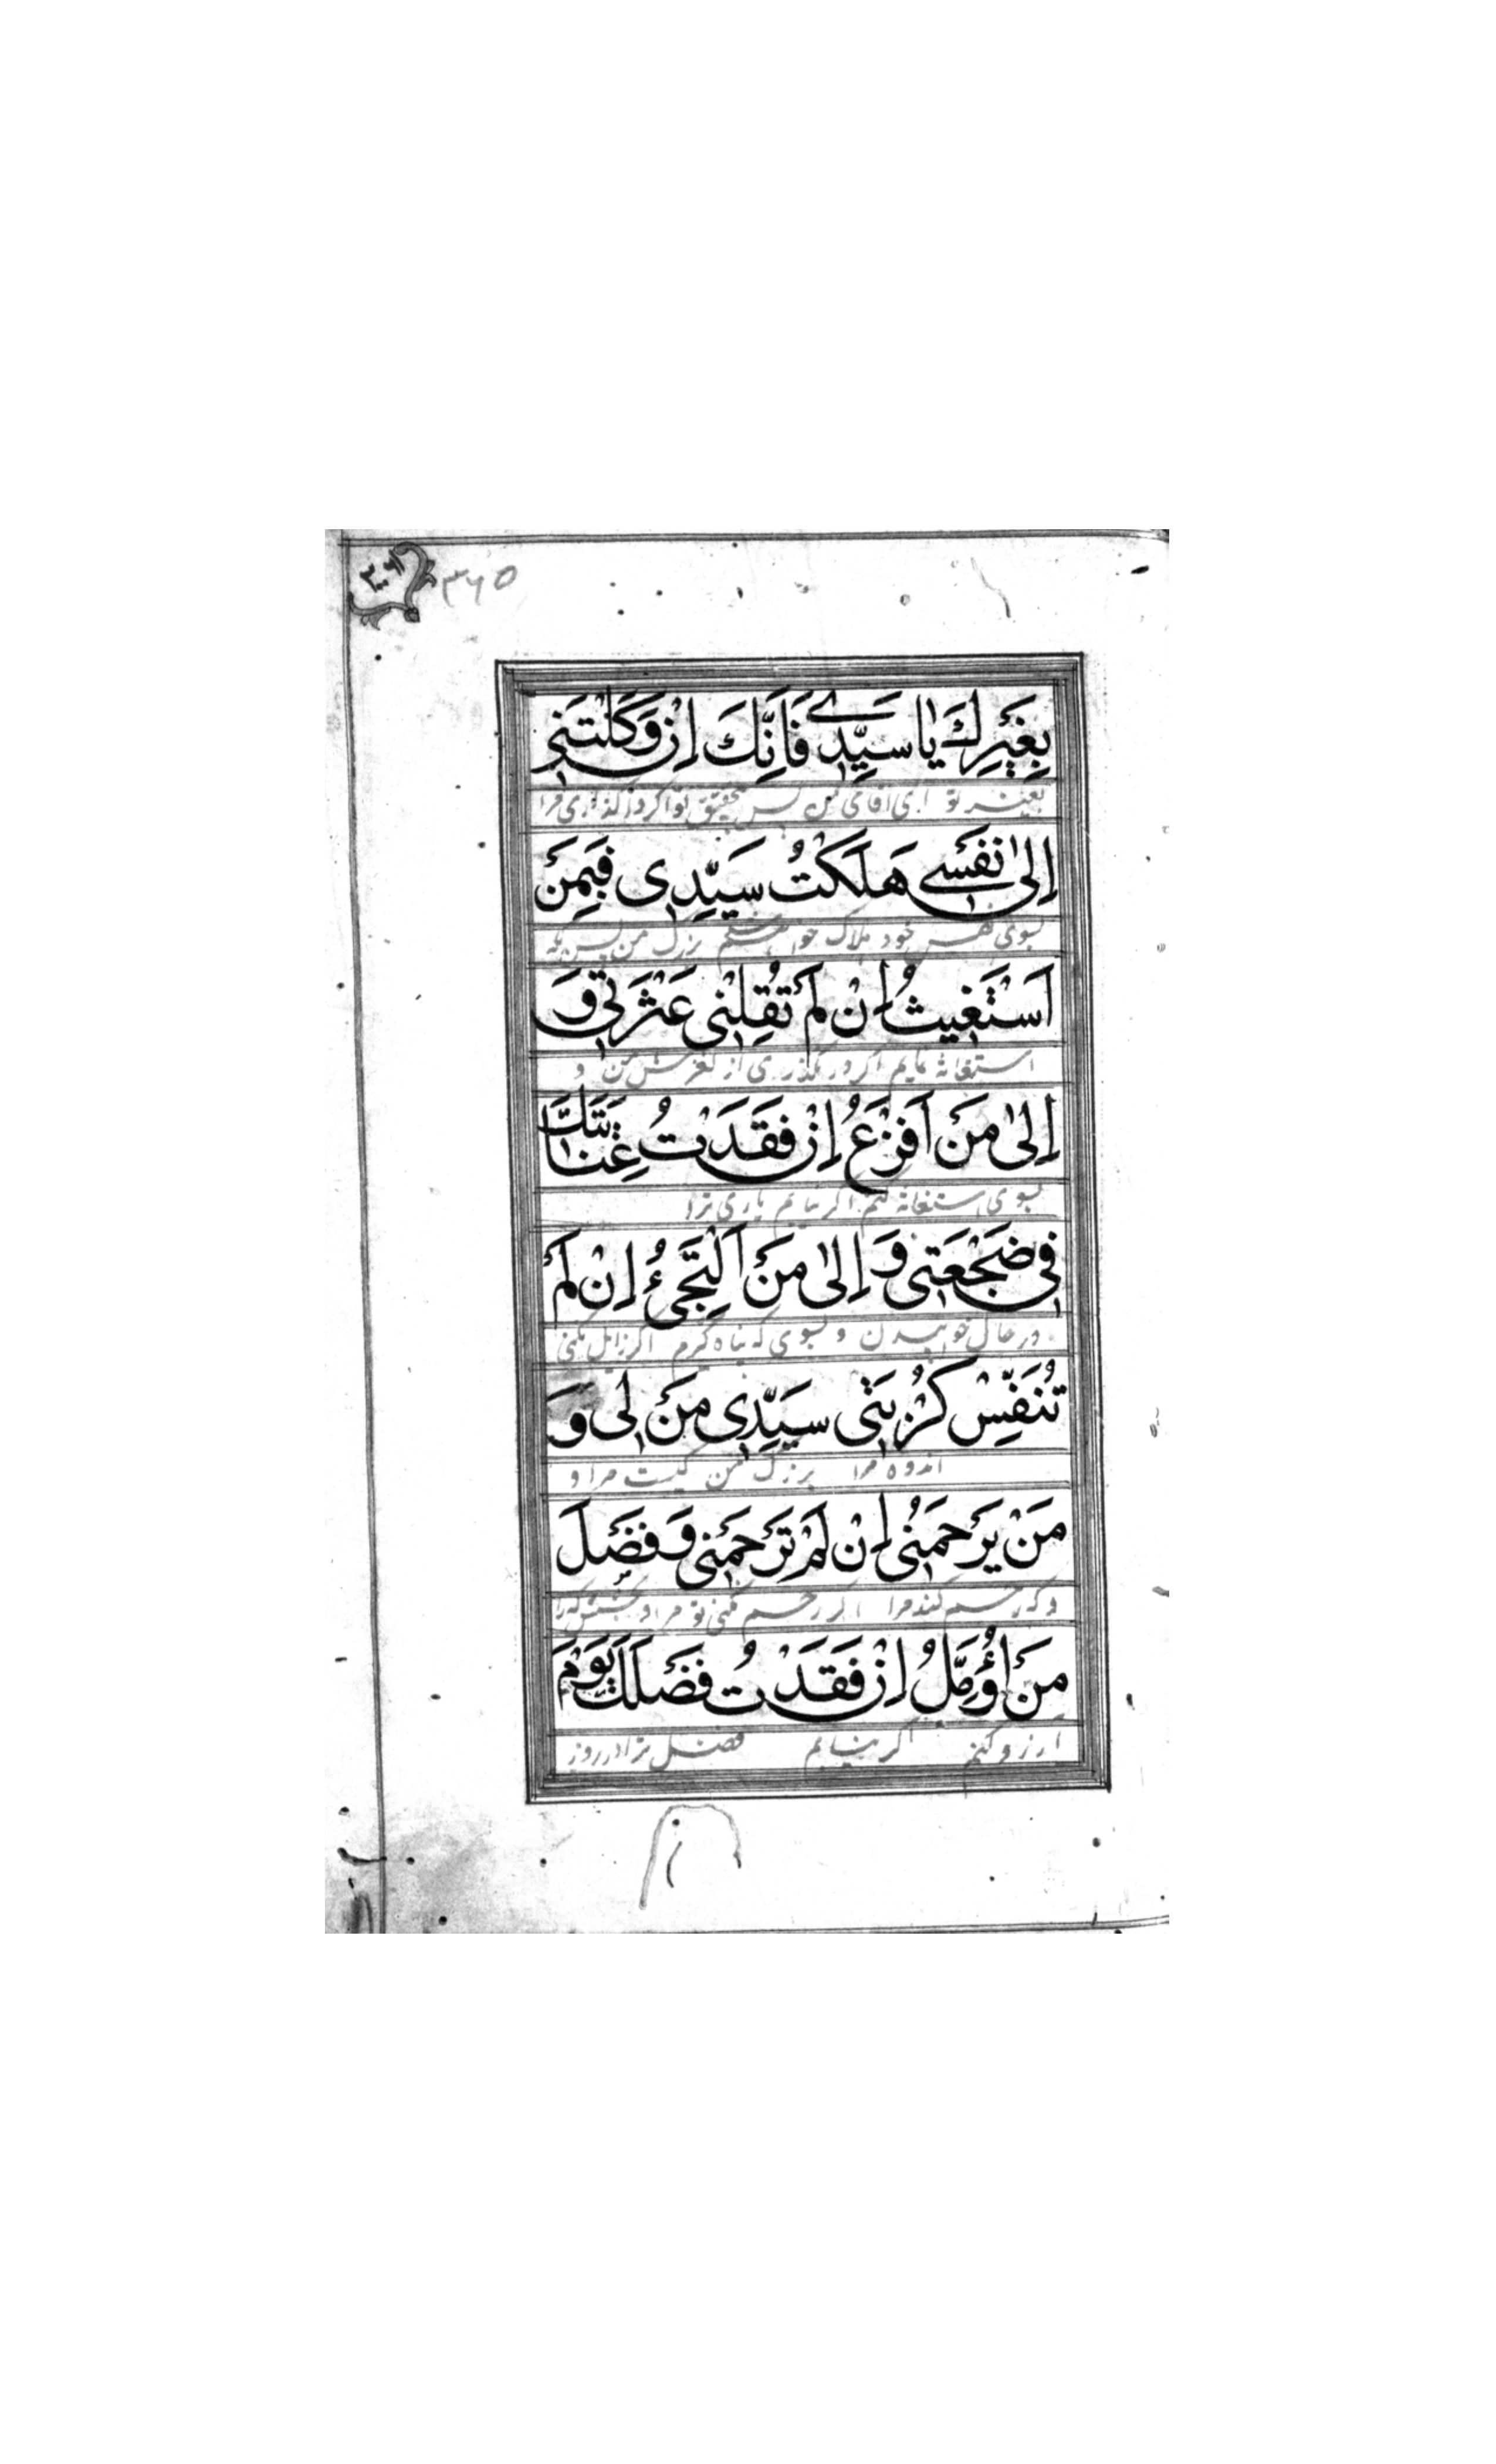 ۳۶۵
بِغَيْرِكَ يٰا سَيِّدى فَاِنَّكَ اِنْ وَكَلْتَنى
بغیر تو ای آقای من پس بتحقیق تو اگر واگذاری مرا
اِلىٰ نَفْسى هَلَكْتُ سَيِّدِى فَبِمَنْ
بسوی نفس خود هلاک خواهم شد بزرگ من پس بکه
اَسْتَغيثُ اِنْ لَمْ تُقِلْنى عَثْرَتى وَ
استغاثه نمایم اگر در نگذری از لغزش من و
اِلىٰ مَنْ اَفْزَعُ اِنْ فَقَدْتُ عِنٰايَتَكَ
بسوی استغاثه کنم اگر نیابم یاری ترا
فى ضَجْعَتى وَ اِلىٰ مَنْ اَلْتَجِىُٔ اِنْ لَمْ
در حال خوابیدن و بسوی که پناه گیرم اگر زایل نکنی
تُنَفِّسْ كُرْبَتى سَيِّدِى مَنْ لى وَ
اندوه مرا بزرگ من کیست مرا و
مَنْ يَرْحَمُنى اِنْ لَمْ تَرْحَمْنى وَ فَضْلَ
و که رحم کند مرا اگر رحم نکنی تو مرا و بخشش که را
مَنْ اُؤَمِّلُ اِنْ فَقَدْتُ فَضْلَكَ يَوْمَ
آرزو کنم اگر نیابم فضل ترا در روز